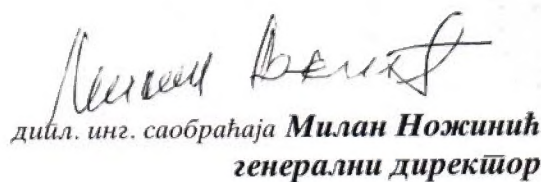 дипл. инг. саобраћаја Милан Ножинић
генерални директор